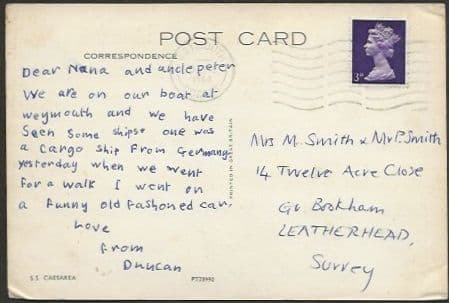 POST CARD
CORRESPONDENCE
Dear Nana and uncle peter
We are on our boat at
weymouth and we have
Seen some ships one was
a cargo ship from Germany
yesterday when we went
for a walk I went on
a funny old fashoned car.
Love
from
Duncan
S.S. CAESAREA
PT28992
PRINTED IN GREAT BRITAIN
3D
Mrs M. Smith & Mr P. Smith
14 Twelve Acre Close
Gt Bookham
LEATHERHEAD,
Surrey